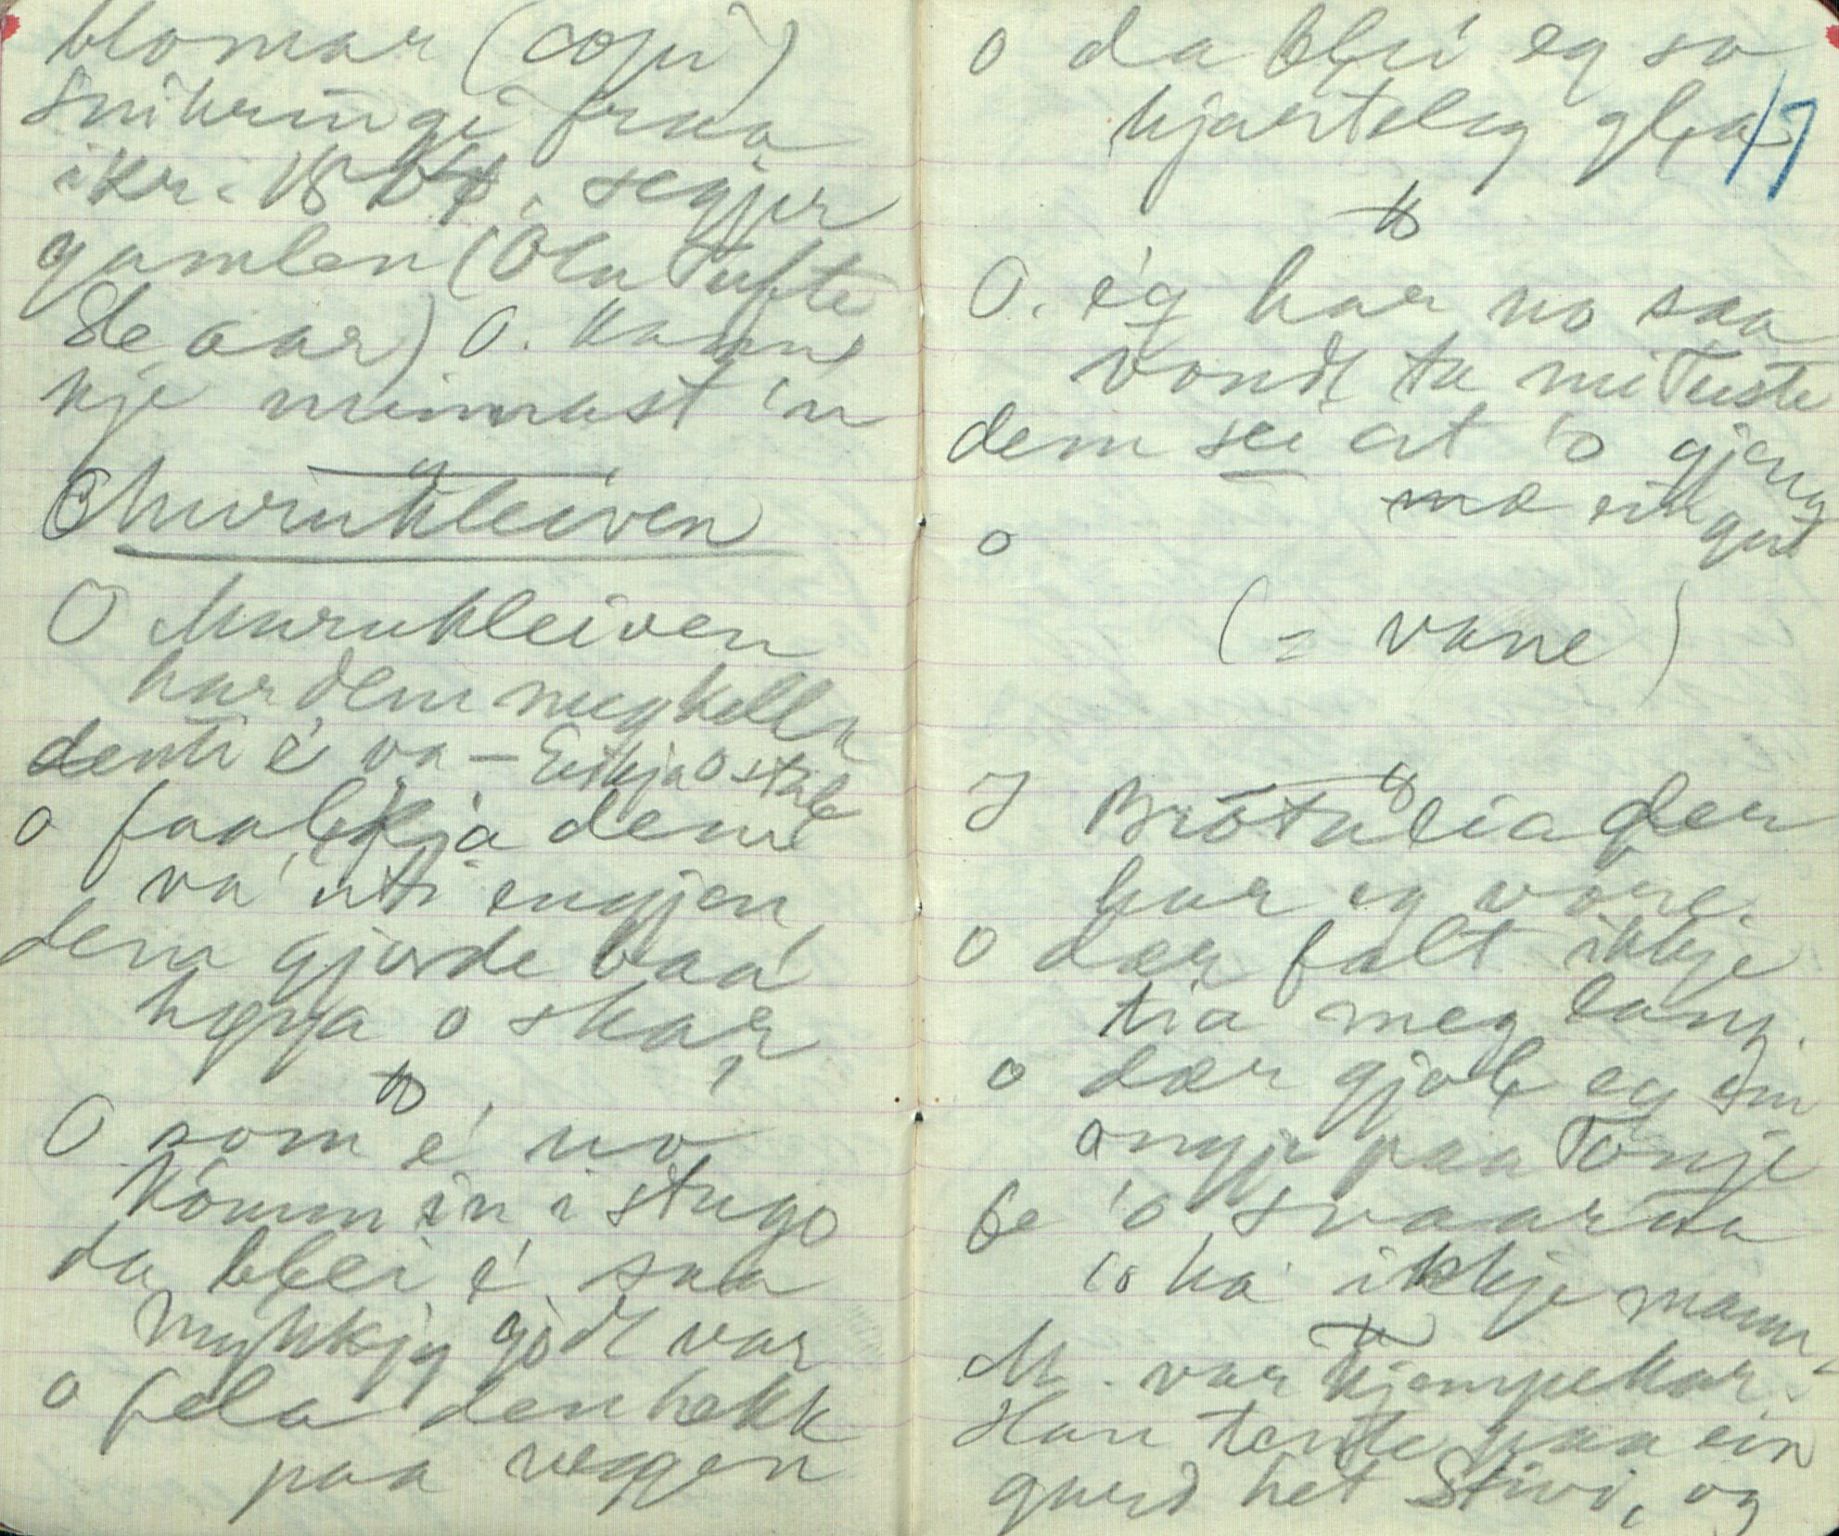 blomar (copi)
Snikringi fraa
ikr. 18, segjer
gamlen (Ola Tufte
80 aar) O. kann
kje minnast 'n
Murukleiven
O Murukleiven
har dem meg kalla
denti é va – Eikja o stak
o faalekja dem
va uti engjen
dem gjorde baa
høgga o skar
O som é no
kömm in i stugo
da blei é saa
mykkjy godt var
o fela den hekk
paa veggen
17
o da blei eg so
hjarteleg gla
O. ég har no saa
vondt ta mi Tuste
dem sei at 'o gjeng
mæ ein gut
o
(= vane)
I Brötulia der
har eg vore.
o dær falt ikkje
tia meg lang.
o dær gjole eg ein
ongp paa Tonje
be 'o svaara
'o ha ikkje mann
M. var kjempekar.
Han tente paa ein
gard het Stivi, og